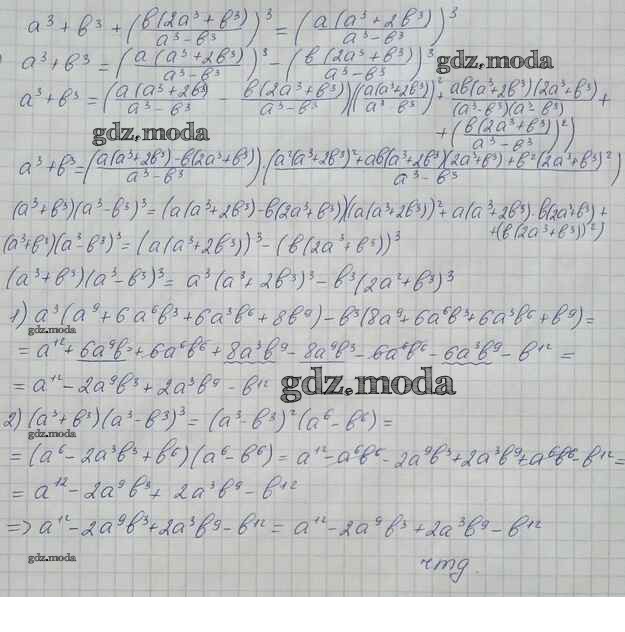 a³ + b³ + (b(2a³ + b³)/a³ − b³)³ = (a(a³ + 2b³)/a³ − b³)³
a³ + b³ = (a(a³ + 2b³)/a³ − b³)³ − (b(2a³ + b³)/a³ − b³)³
gdz.moda
a³ + b³ = (a(a³ + 2b³)/a³ − b³ − b(2a³ + b³)/a³ − b³)((a(a³ + 2b³)/a³ − b³)² + ab(a³ + 2b³)(2a³ + b³)/(a³ − b³)(a³ − b³) +
+ (b(2a³ + b³)/a³ − b³)²)
gdz.moda
a³ + b³ = (a(a³ + 2b³) − b(2a³ + b³)/a³ − b³)·(a²(a³ + 2b³)² + ab(a³ + 2b³)(2a³ + b³) + b²(2a³ + b³)²/a³ − b³)
(a³ + b³)(a³ − b³)³ = (a(a³ + 2b³) − b(2a³ + b³))((a(a³ + 2b³))² + a(a³ + 2b³)·b(2a³ + b³) +
+ (b(2a³ + b³))²)
(a³ + b³)(a³ − b³)³ = (a(a³ + 2b³))³ − (b(2a³ + b³))³
(a³ + b³)(a³ − b³)³ = a³(a³ + 2b³)³ − b³(2a² + b³)³
1) a³(a⁹ + 6a⁶b³ + 6a³b⁶ + 8b⁹) − b³(8a⁹ + 6a⁶b³ + 6a³b⁶ + b⁹) =
gdz.moda
= a¹² + 6a⁹b³ + 6a⁶b⁶ + 8a³b⁹ − 8a⁹b³ − 6a⁶b⁶ − 6a³b⁹ − b¹² =
= a¹² − 2a⁹b³ + 2a³b⁹ − b¹²
gdz.moda
2) (a³ + b³)(a³ − b³)³ = (a³ − b³)²(a⁶ − b⁶) =
gdz.moda
= (a⁶ − 2a³b³ + b⁶)(a⁶ − b⁶) = a¹² − a⁶b⁶ − 2a⁹b³ + 2a³b⁹ + a⁶b⁶ − b¹² =
= a¹² − 2a⁹b³ + 2a³b⁹ − b¹²
=> a¹² − 2a⁹b³ + 2a³b⁹ − b¹² = a¹² − 2a⁹b³ + 2a³b⁹ − b¹²
gdz.moda
чтд.